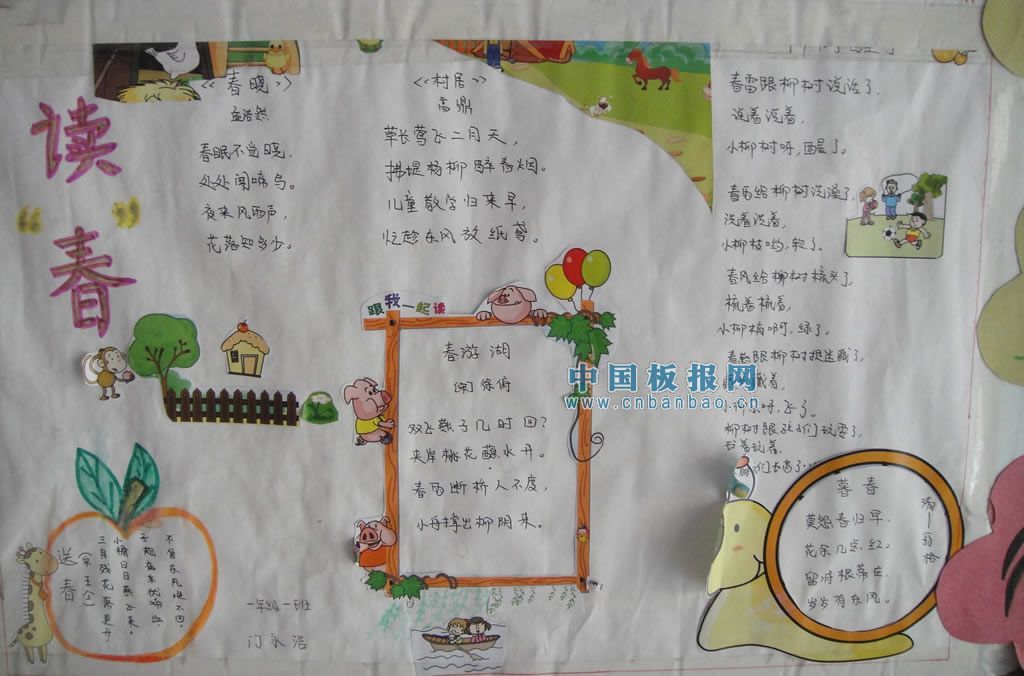 读
“春”
《春晓》
孟浩然
春眠不觉晓，
处处闻啼鸟。
夜来风雨声，
花落知多少。
《村居》
高鼎
草长莺飞二月天，
拂堤杨柳醉春烟。
儿童散学归来早，
忙趁东风放纸鸢。
春雷跟柳树说话了，
说着说着，
小柳树呀，醒了。
春雨给柳树洗澡了，
洗着洗着，
小柳枝哟，软了。
春风给柳树梳头了，
梳着梳着，
小柳梢啊，绿了。
春燕跟柳树捉迷藏了，
藏着，
小柳絮呀，飞了。
柳树跟孩子们玩耍了，
玩着玩着，
们长高了…
跟我一起读
春游湖
[宋]徐俯
双飞燕子几时回？
夹岸桃花蘸水开。
春雨断桥人不度，
小舟撑出柳阴来。
中国板报网
www.cnbanbao.cn
送春
（宋王令）
三月残花落更开，
小檐日日燕飞来。
子规夜半犹啼血，
不信东风唤不回。
一年级一班
门永浩
暮春
清—翁格
莫怨春归早，
花余几点红。
留将根蒂在，
岁岁有东风。